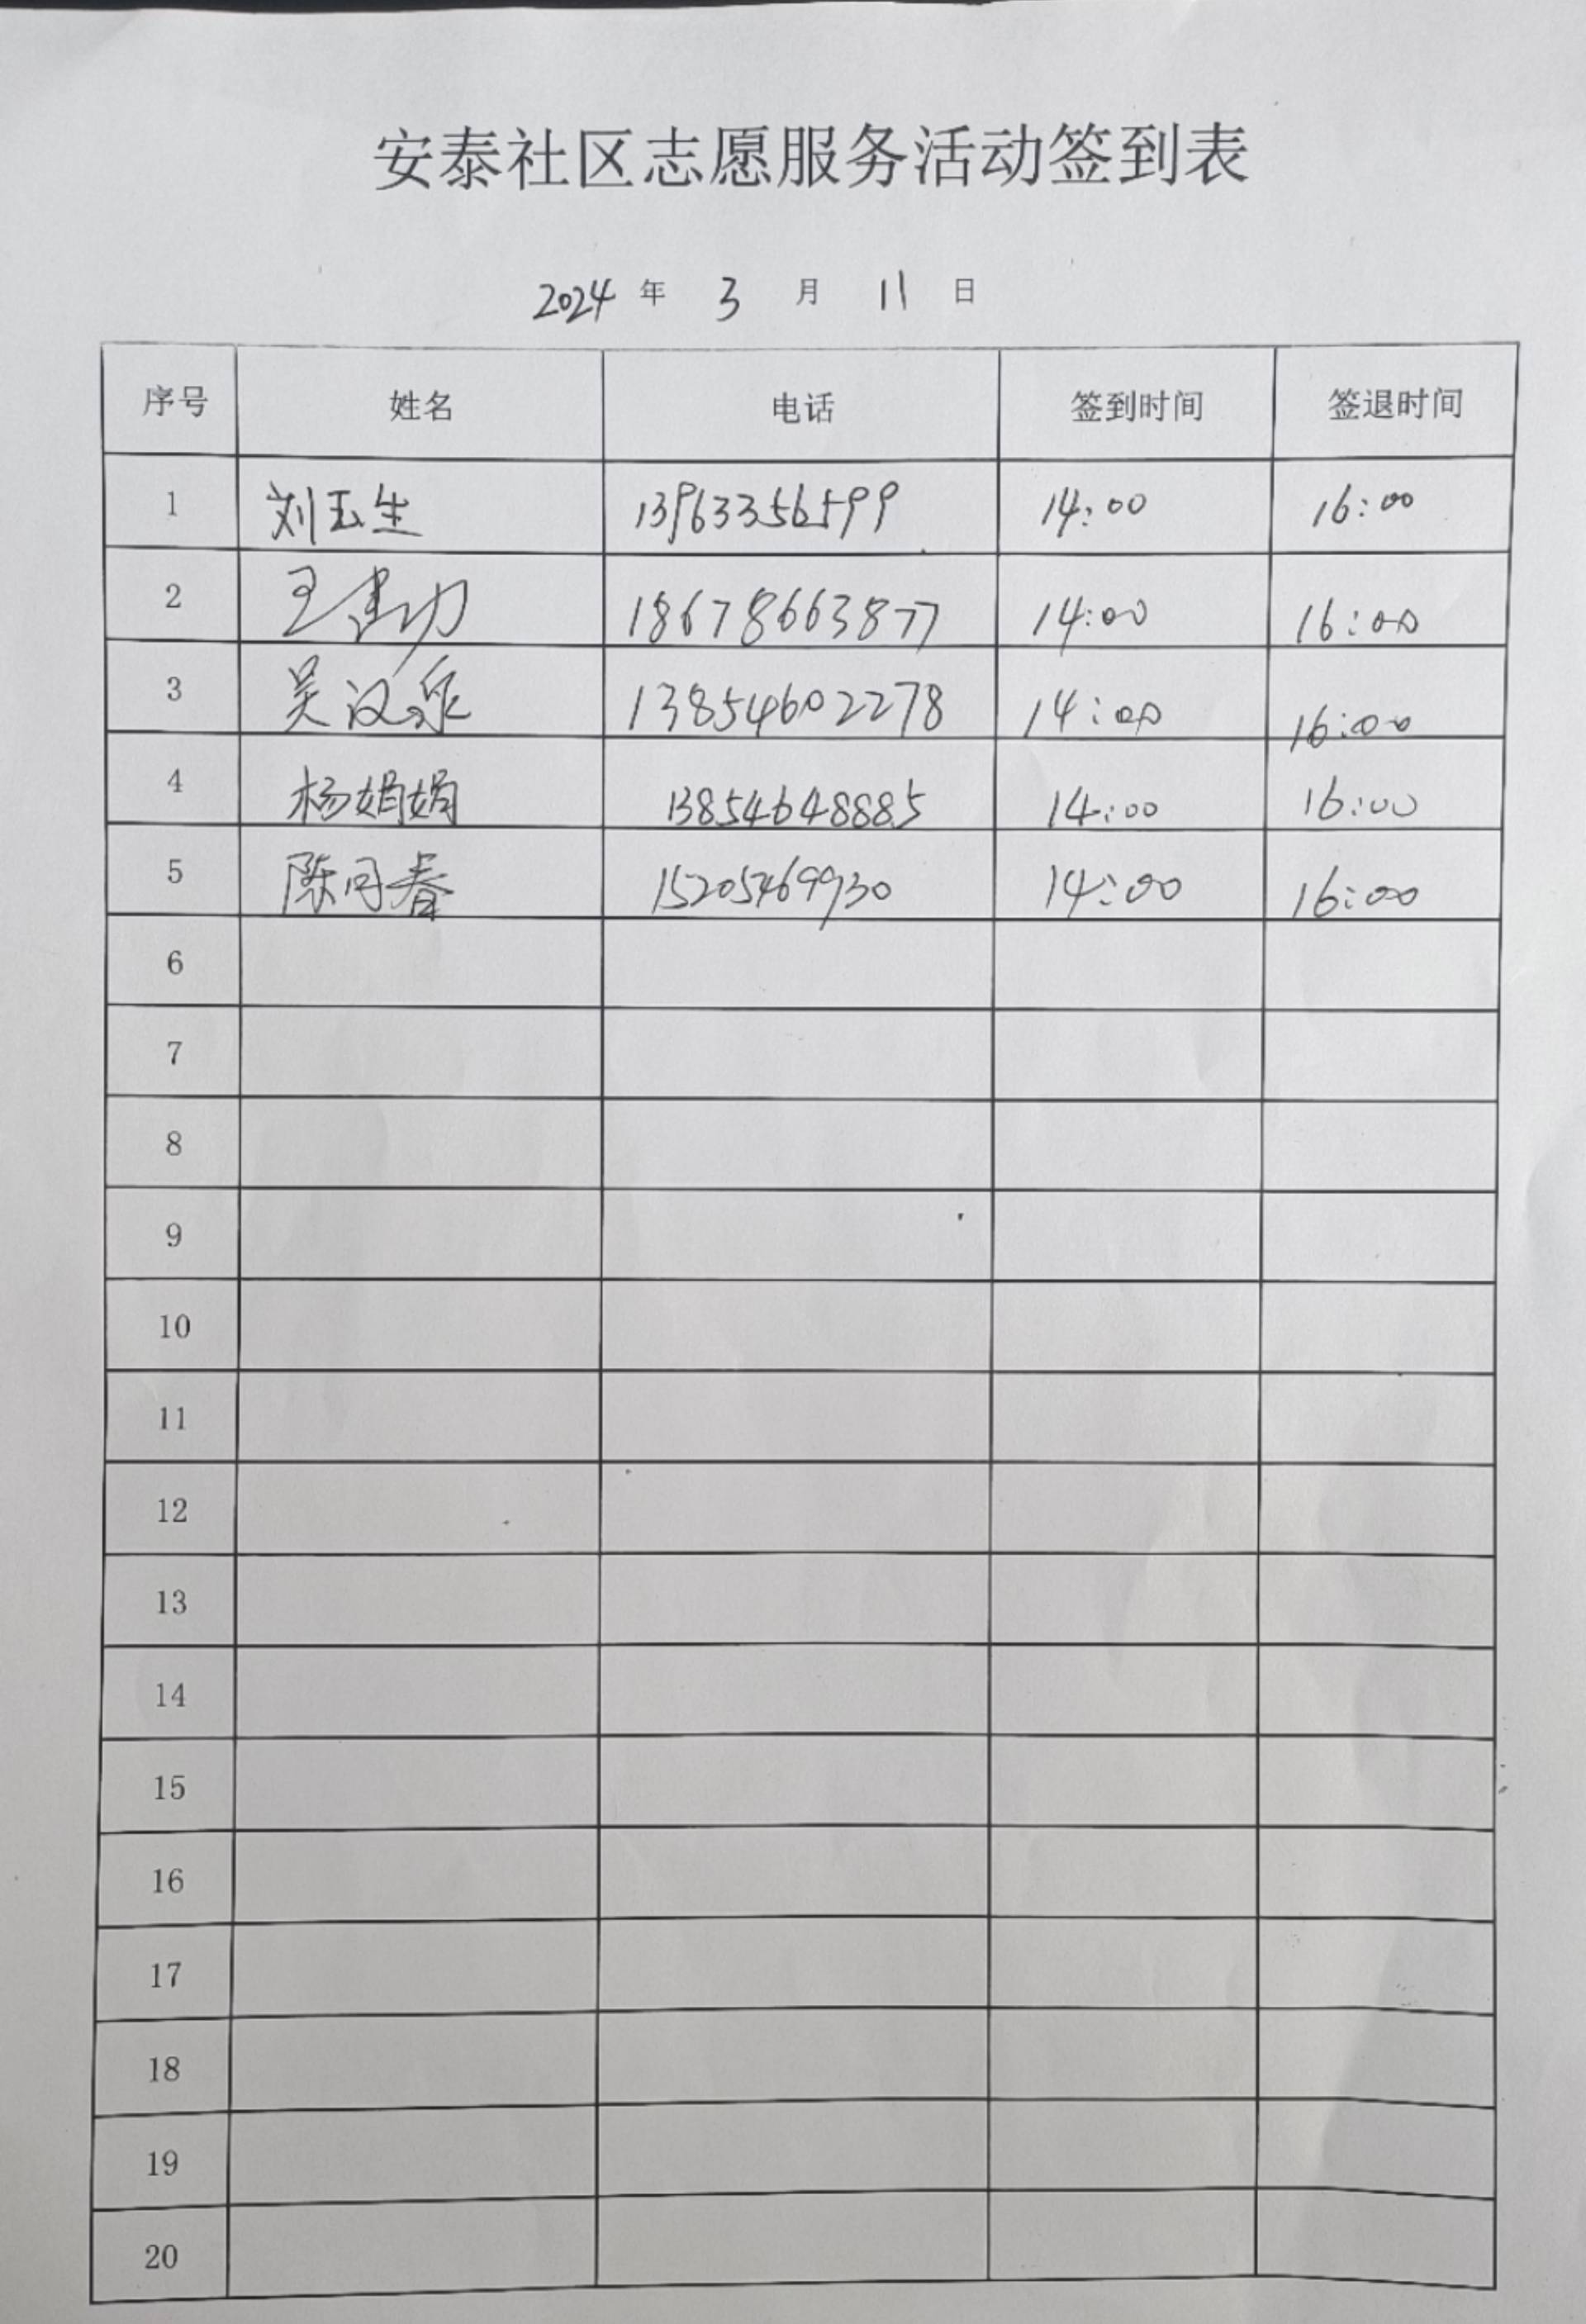 安泰社区志愿服务活动签到表
2024 年 3 月 11 日
序号 姓名 电话 签到时间 签退时间
1 刘玉生 13963356599 14:00 16:00
2 王建功 18678663877 14:00 16:00
3 吴汉泉 13854602278 14:00 16:00
4 杨娟娟 13854648885 14:00 16:00
5 陈同春 15205469930 14:00 16:00
6
7
8
9
10
11
12
13
14
15
16
17
18
19
20